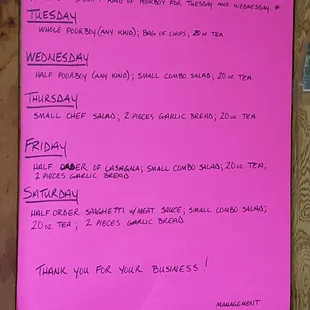 KIND OF POORBOY FOR TUESDAY AND WEDNESDAY. *
TUESDAY
WHOLE POORBOY (ANY KIND); BAG OF CHIPS; 20 oz TEA
WEDNESDAY
HALF POORBOY (ANY KIND); SMALL COMBO SALAD; 20 oz. TEA
THURSDAY
SMALL CHEF SALAD; 2 PIECES GARLIC BREAD; 20 oz TEA
FRIDAY
HALF ORDER OF LASAGNA; SMALL COMBO SALAD; 20 oz. TEA;
2 PIECES GARLIC BREAD
SATURDAY
HALF ORDER SPAGHETTI W/MEAT SAUCE; SMALL COMBO SALAD;
20 oz TEA; 2 PIECES GARLIC BREAD
THANK YOU FOR YOUR BUSINESS!
MANAGEMENT